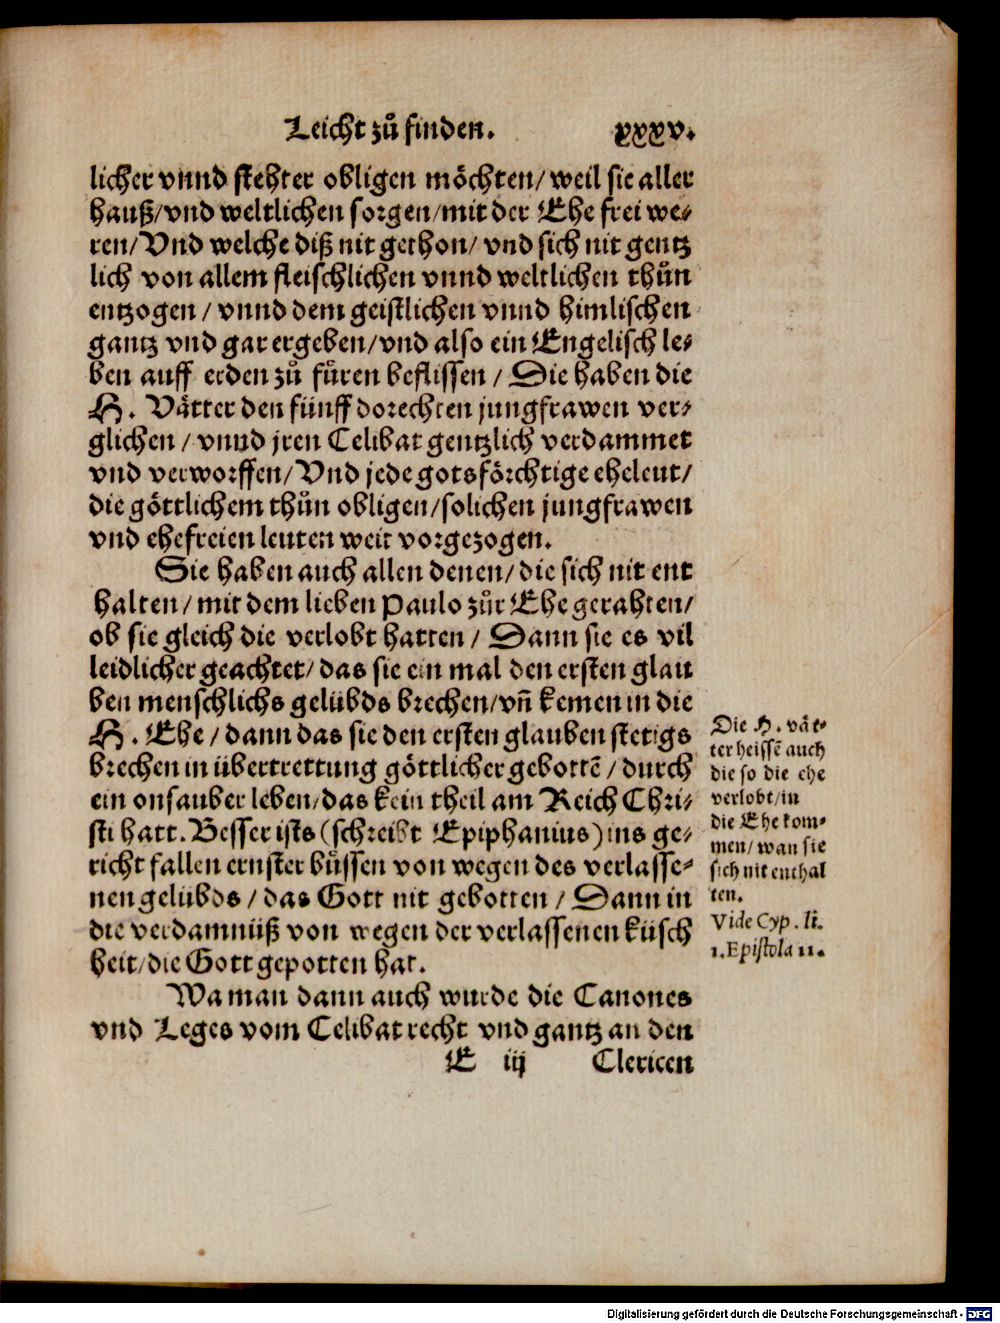 Leicht zů finden. xxxv.
licher vnnd stehter obligen möchten/weil sie aller
hauß/vnd weltlichen sorgen/mit der Ehe frei we⸗
ren/Vnd welche diß nit gethon/vnd sich nit gentz
lich von allem fleischlichen vnnd weltlichen thůn
entzogen/vnnd dem geistlichen vnnd himlischen
gantz vnd gar ergeben/vnd also ein Engelisch le⸗
ben auff erden zů fůren beflissen/Die haben die
H. Vätter den fünff dorechten jungfrawen ver⸗
glichen/vnnd jren Celibat gentzlich verdammet
vnd verworffen/Vnd jede gotsförchtige eheleut/
die göttlichem thůn obligen/solichen jungfrawen
vnd ehefreien leuten weit vorgezogen.
Sie haben auch allen denen/die sich nit ent
halten/mit dem lieben Paulo zůr Ehe gerahten/
ob sie gleich die verlobt hatten/Dann sie es vil
leidlicher geachtet/das sie ein mal den ersten glau
ben menschlichs gelübds brechen/vñ kemen in die
H. Ehe/dann das sie den ersten glauben stetigs
brechen in übertrettung göttlicher gebottẽ/durch
ein onsauber leben/das kein theil am Reich Chri⸗
sti hatt. Besser ists (schreibt Epiphanius) ins ge⸗
richt fallen ernster bůssen von wegen des verlasse⸗
nen gelübds/das Gott nit gebotten/Dann in
die verdamnüß von wegen der verlassenen küsch
heit/die Gott gepotten hat.
Die H. vät⸗
ter heissẽ auch
die so die ehe
verlobt/in
die Ehe kom⸗
men/wan sie
sich nit enthal
ten.
Vide Cyp. li.
1. Epistola 11.
Wa man dann auch wurde die Canones
vnd Leges vom Celibat recht vnd gantz an den
E iij Clericen
Digitalisierung gefördert durch die Deutsche Forschungsgemeinschaft - DFG